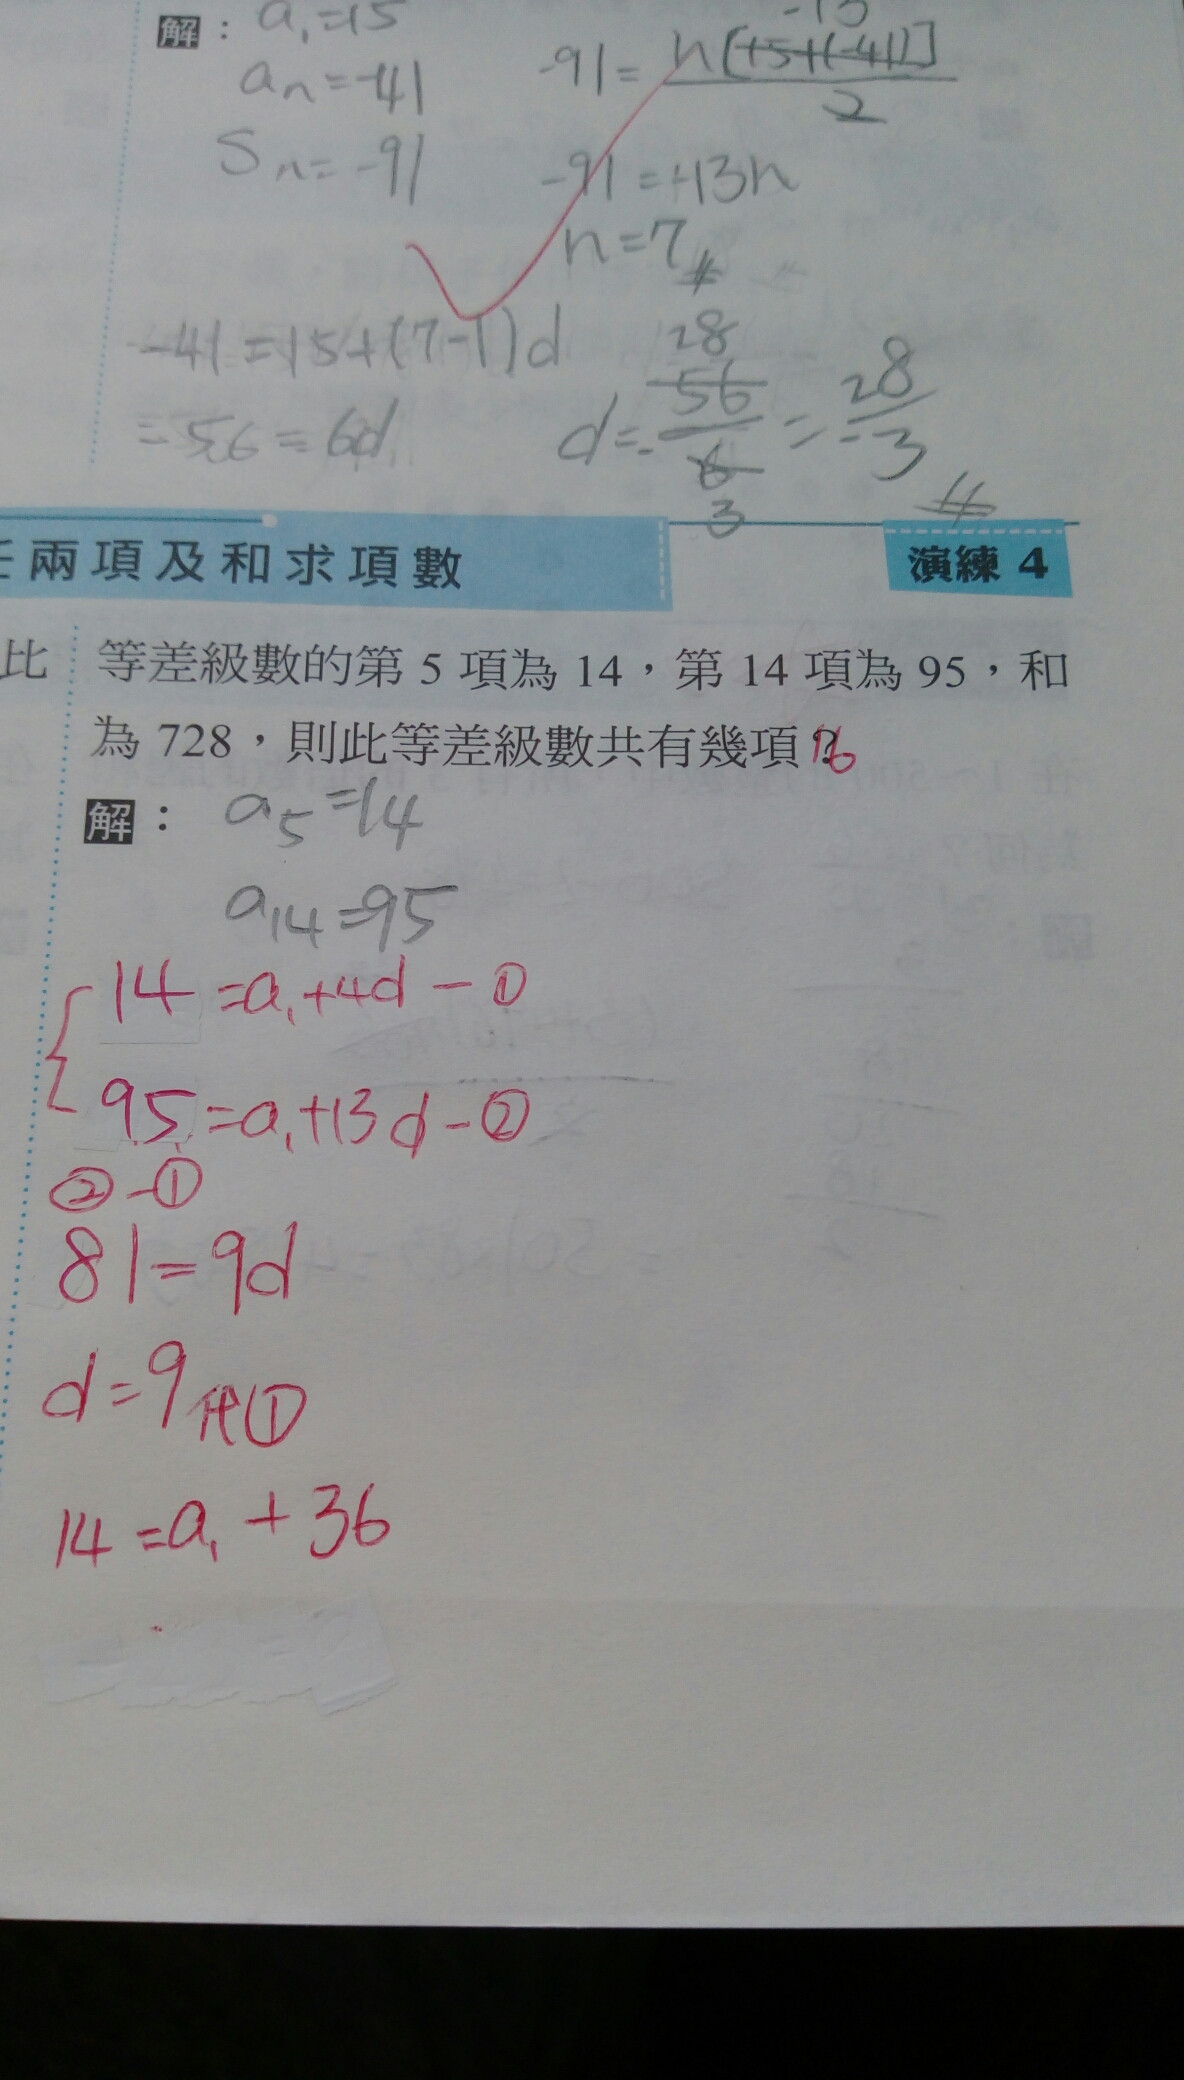 解：a₁=15
aₙ=-41
-15
-91=n[15+(-41)]/2
Sₙ=-91
-91=-13n
n=7#
-41=15+(7-1)d
28
-56=6d
d=-56/6=28/-3 #
3
兩項及和求項數
演練 4
比
等差級數的第 5 項為 14，第 14 項為 95，和
為 728，則此等差級數共有幾項？16
解：a₅=14
a₁₄=95
14=a₁+4d-①
95=a₁+13d-②
②-①
81=9d
d=9代①
14=a₁+36